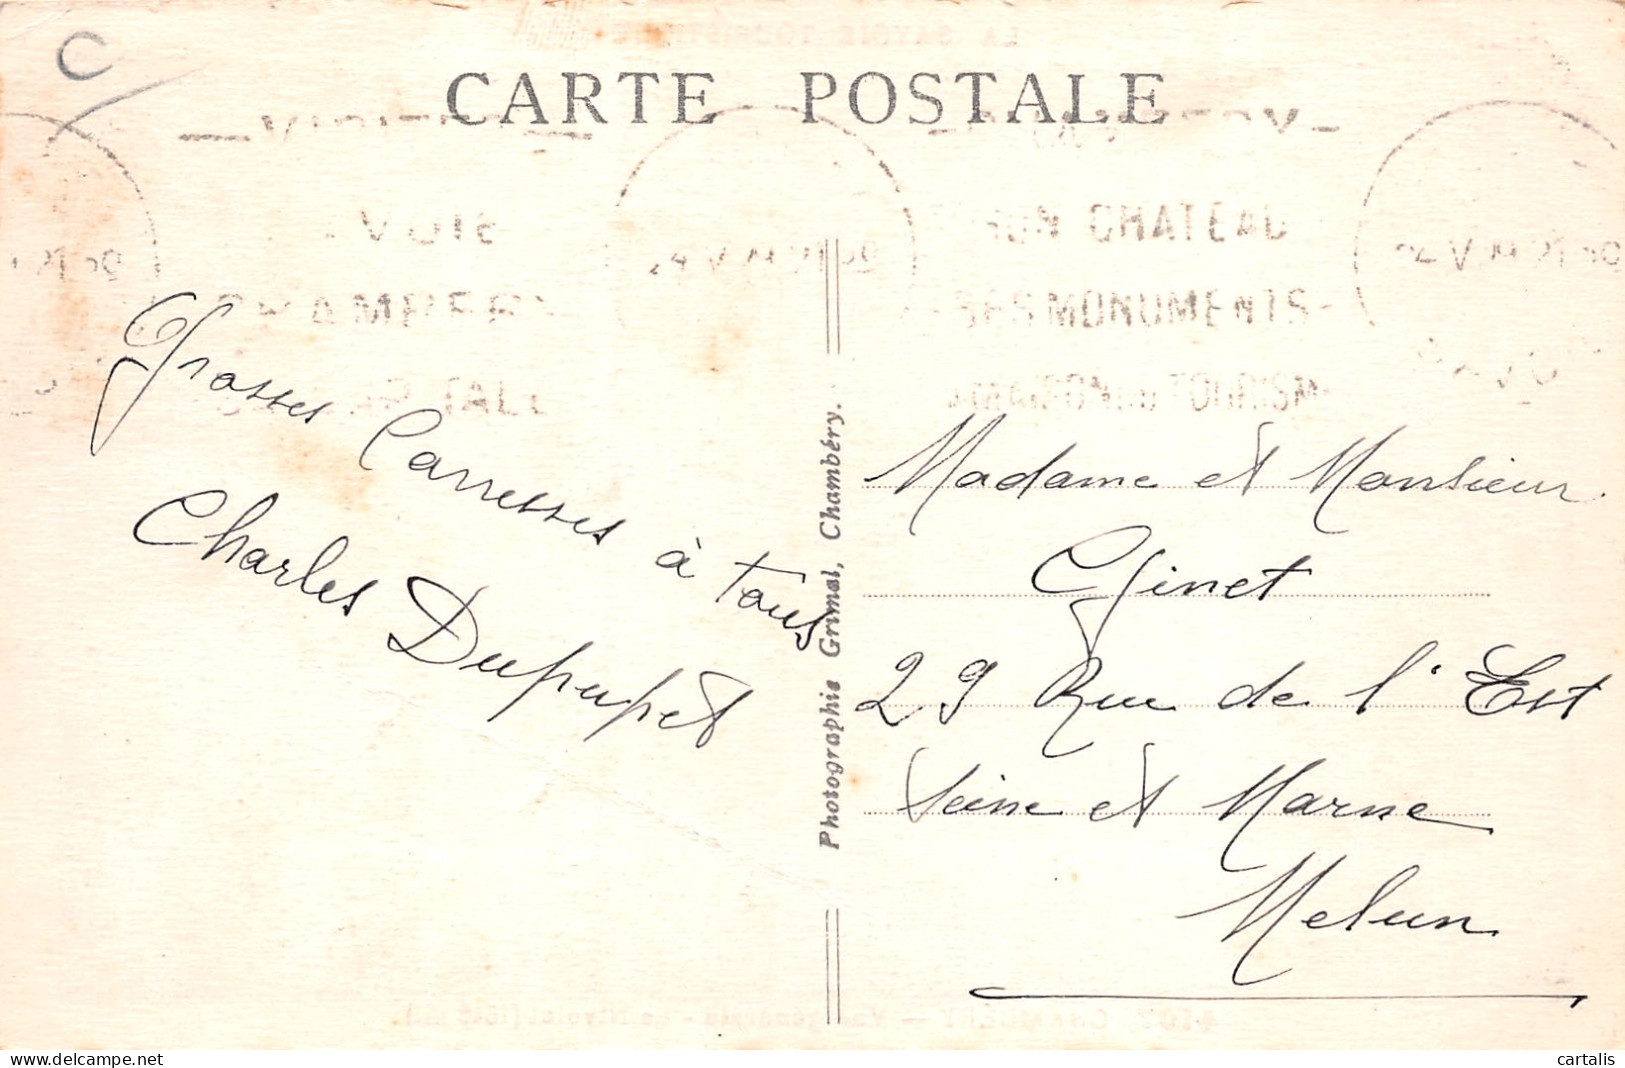 CARTE POSTALE
SON CHATEAU
SES MONUMENTS
Grosses Carresses à tous
Charles Dupupet
Photographie Grimal, Chambéry.
Madame et Monsieur
Ginet
29 Rue de l'Est
Seine et Marne
Melun
delcampe.net
cartalis